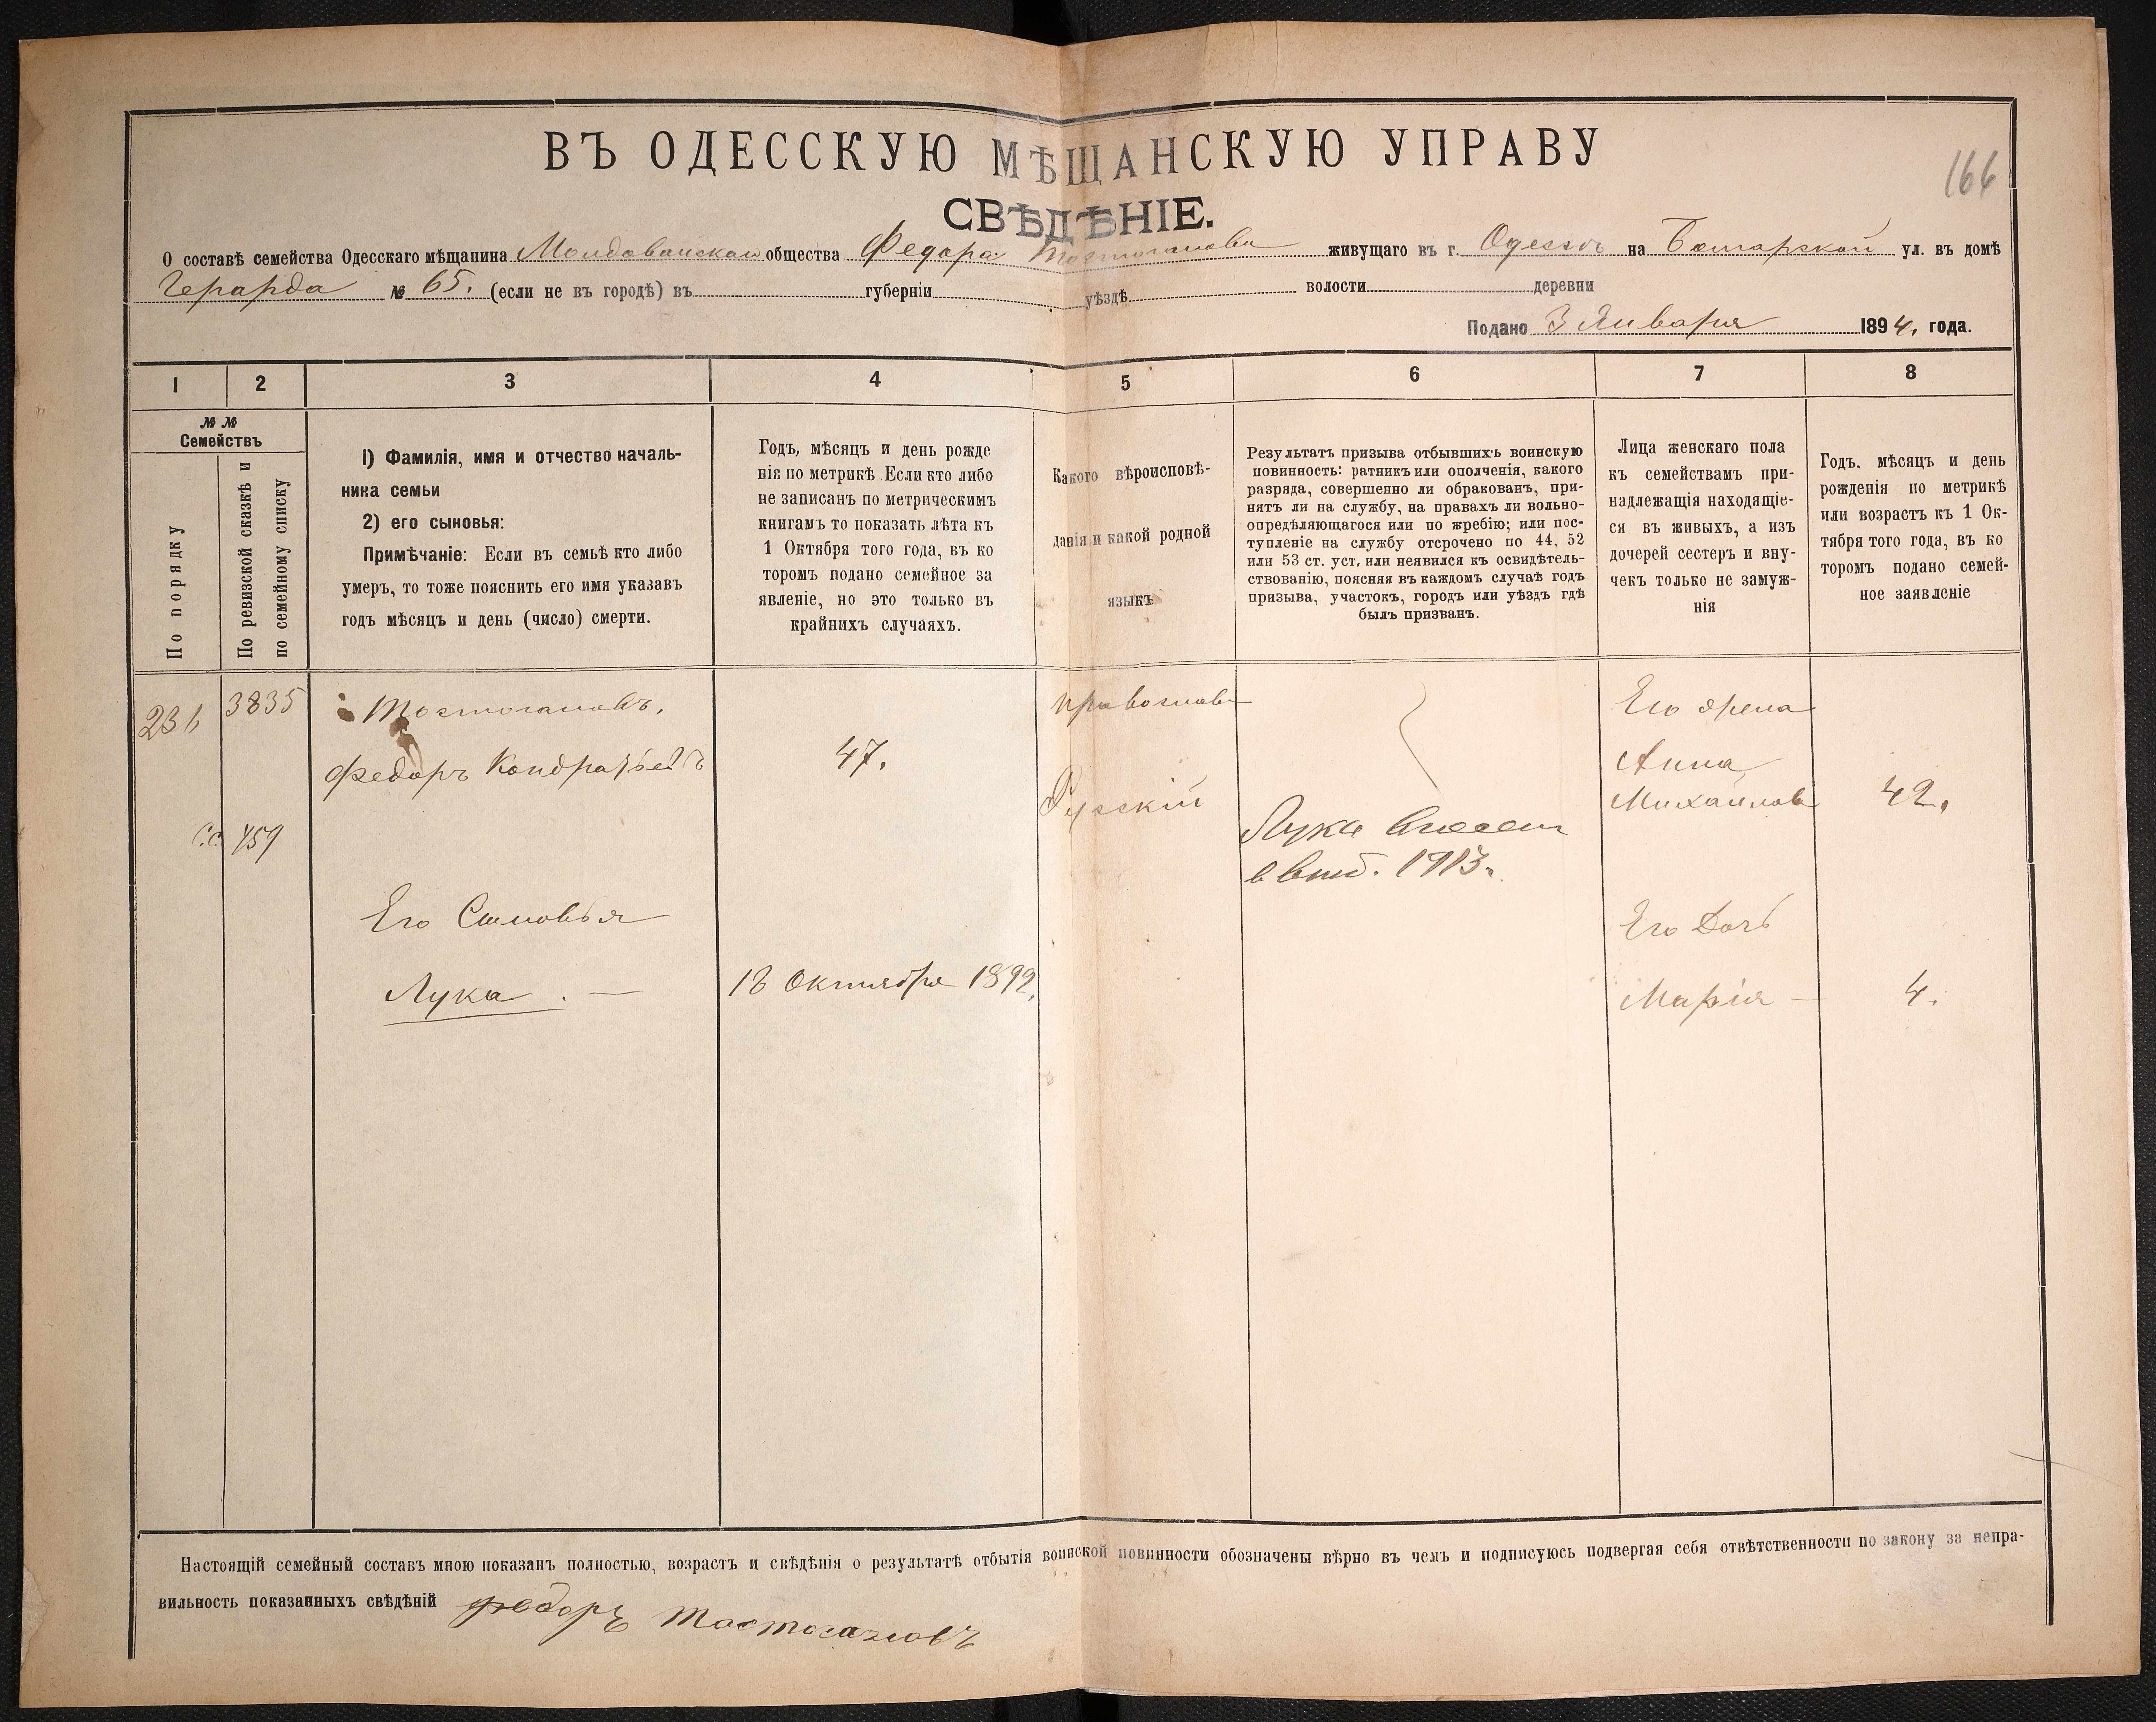 166
ВЪ ОДЕССКУЮ МѢЩАНСКУЮ УПРАВУ
СВѢДѢНІЕ.
О составѣ семейства Одесскаго мѣщанина Молдаванскаго общества Федора Тостоганова живущаго въ г. Одессѣ на Болгарской ул. въ домѣ
Герарда № 65. (если не въ городѣ) въ губерніи уѣздѣ волости деревни
Подано 3 Января 1894, года.
1 2 3 4 5 6 7 8
№ №
Семействъ
По порядку
По ревизской сказкѣ и
по семейному списку
1) Фамилія, имя и отчество началь-
ника семьи
2) его сыновья:
Примѣчаніе: Если въ семьѣ кто либо
умеръ, то тоже пояснить его имя указавъ
годъ мѣсяцъ и день (число) смерти.
Годъ, мѣсяцъ и день рожде
нія по метрикѣ Если кто либо
не записанъ по метрическимъ
книгамъ то показать лѣта къ
1 Октября того года, въ ко
торомъ подано семейное за
явленіе, но это только въ
крайнихъ случаяхъ.
Какого вѣроисповѣ-
данія и какой родной
языкъ
Результатъ призыва отбывшихъ воинскую
повинность: ратникъ или ополченія, какого
разряда, совершенно ли обракованъ, при-
нятъ ли на службу, на правахъ ли вольно-
опредѣляющагося или по жребію; или пос-
тупленіе на службу отсрочено по 44, 52
или 53 ст. уст, или неявился къ освидѣтель-
ствованію, поясняя въ каждомъ случаѣ годъ
призыва, участокъ, городъ или уѣздъ гдѣ
былъ призванъ.
Лица женскаго пола
къ семействамъ при-
надлежащія находящіе-
ся въ живыхъ, а изъ
дочерей сестеръ и вну-
чекъ только не замуж-
нія
Годъ, мѣсяцъ и день
рожденія по метрикѣ
или возрастъ къ 1 Ок-
тября того года, въ ко
торомъ подано семей-
ное заявленіе
236 3835 Тостогановъ, православ Его жена
Федоръ Кондратьевъ 47. Анна
Русскій Михайлова 42.
с.с. 459 Лука внесен
в 1913
Его Сыновья Его Дочь
Лука . — 18 Октября 1892, Марія — 4.
Настоящій семейный составъ мною показанъ полностью, возрастъ и свѣдѣнія о результатѣ отбытія воинской повинности обозначены вѣрно въ чемъ и подписуюсь подвергая себя отвѣтственности по закону за непра-
вильность показанныхъ свѣдѣній Федоръ Тостогановъ